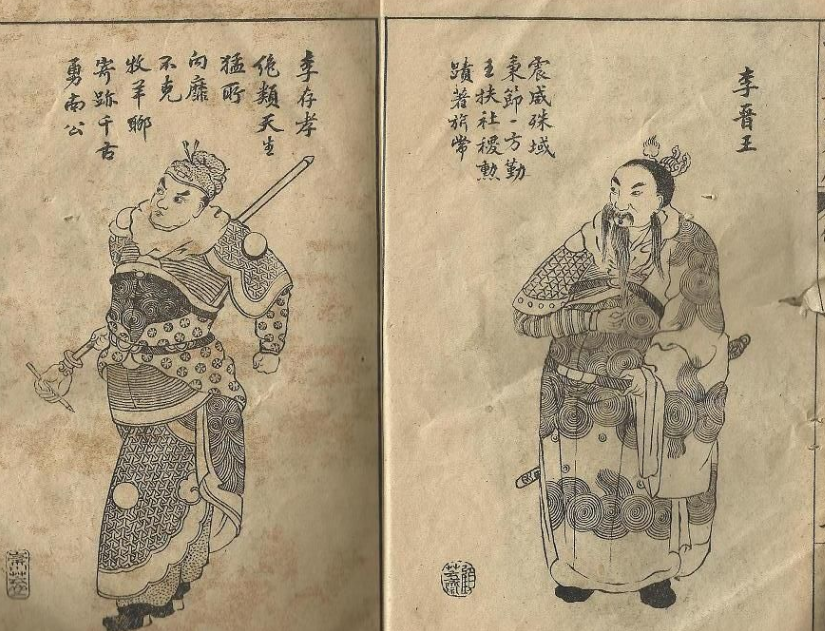 李晉王
震威殊域
秉節一方勤
王扶社稷勲
蹟著旂常
李存孝
絶類天生
猛所
向靡
不克
牧羊聊
寄跡千古
勇南公